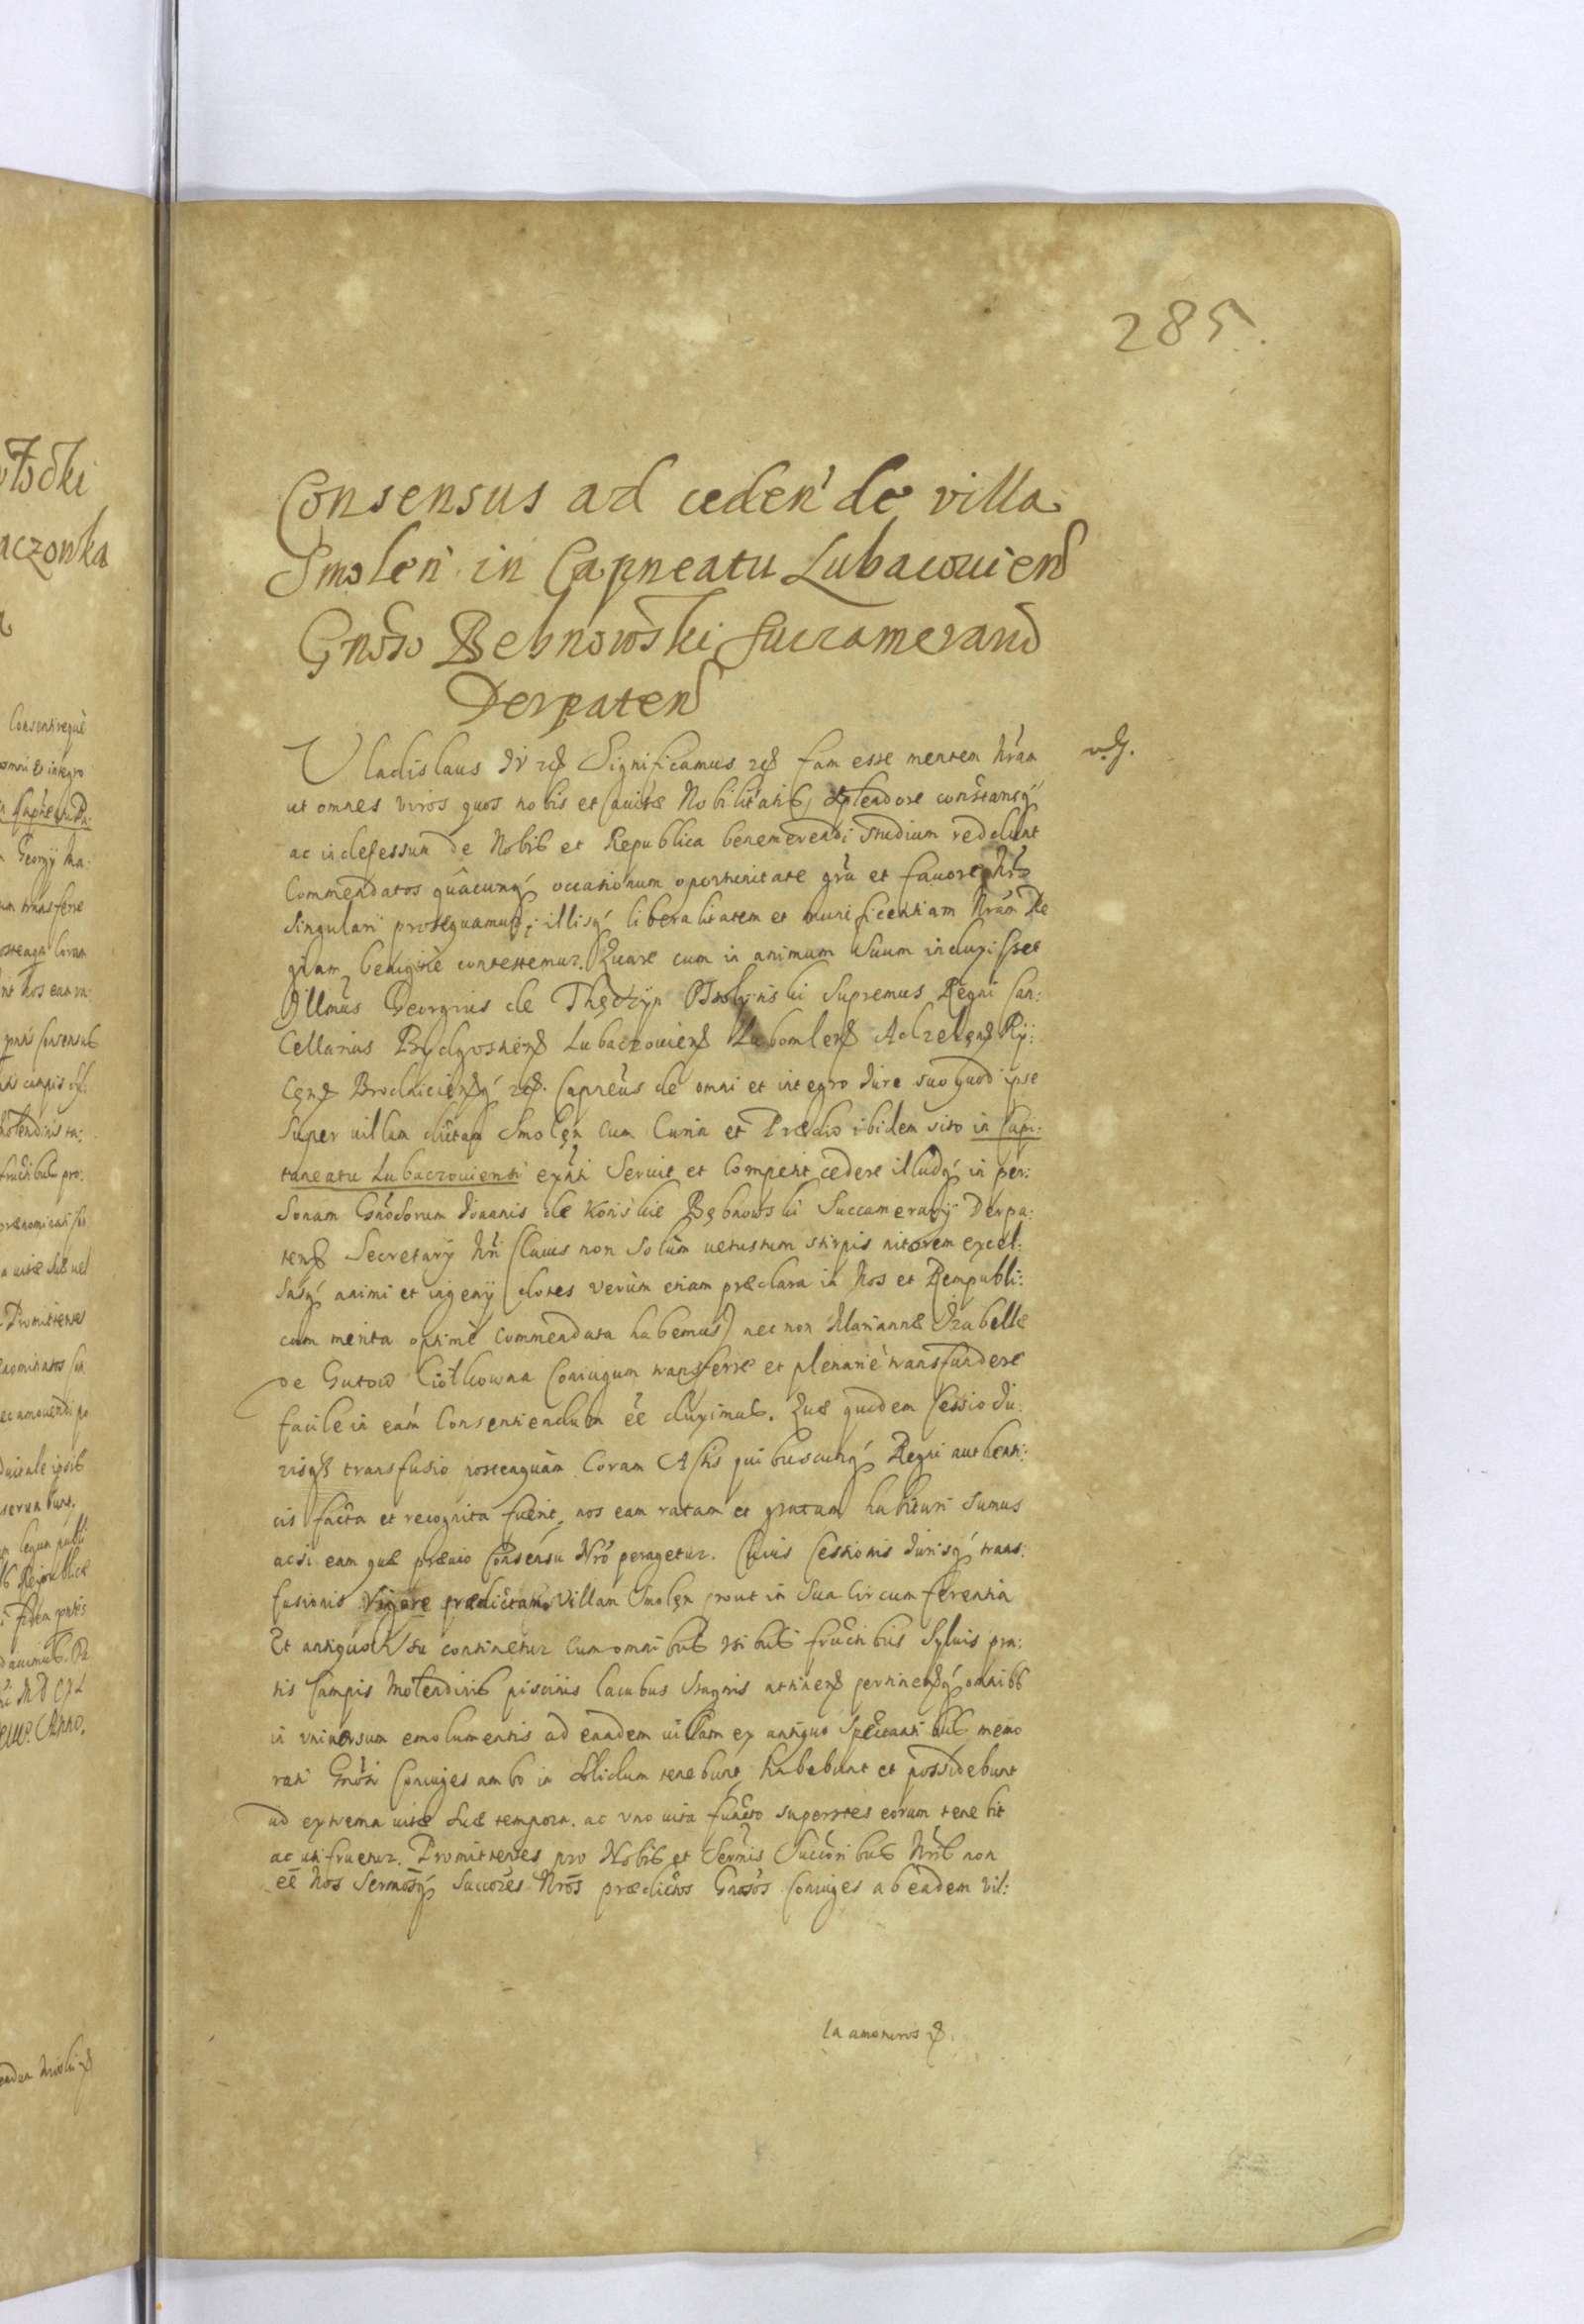 285.
Consensus ad ceden' de villa
Smolen' in Capneatu Lubacouiens
Gnoso Bebnowski Succamerario
Derpatens
Vladislaus IV etc Significamus etc Eam esse mentem nram
ut omnes viros quos nobis et avitæ Nobilitatis splendore constansq́
ac indefessum de Nobis et Republica benemerendi studium reddunt
Commendatos quâcunq́ occationum oportunitate gra et fauore Nro
singulari prosequamur, illisq́ liberalitatem et munificentiam Nram Re
giam benigne contestemur. Quare cum in animum suum induxisset
Illmus Georgius de Thęczyn Ossolynski Supremus Regni Can:
Cellarius Bydgostiens Lubaczouiens Lubomlens Adzelens Ry:
Cens Brodniciensq́ etc. Capneus de omni et integro Jure suo quod ipse
super villam dictam Smolęn cum Curia et Prædio ibidem sito in Capi:
taneatu Lubaczouiensi exñti Seruit et Competit cedere illudq́ in per:
Sonam Gnosorum Joannis de Końskie Bębnowski Succamerarij Derpa:
tens Secretarij Nri (Cuius non solùm uetustum stirpis nitorem excel:
sasq́ animi et ingenij dotes verùm etiam præclara in Nos et Rempubli:
cam merita optimè commendata habemus) nec non Mariannæ Izabellæ
de Gutow Ciołkowna Coniugum transferre et plenariè transfundere
facile in eam Consentiendum eē duximus. Quæ quidem Cessio Ju:
risq́ transfusio posteaquàm Coram Actis quibuscunq́ Regni authenti:
cis facta et recognita fuerit, nos eam ratam et gratam habituri sumus
acsi eam quæ præuio Consensu Nrō peragetur. Cuius Cessionis Jurisq́ trans:
fusionis vigore prædictam Villam Smolęn prout in sua Circumferentia
Et antiquo Usu continetur Cum omnibus vtibus fructibus Syluis pra:
tis Campis Molendinis piscinis lacubus Stagnis attinens pertinensq́ omnibs
in vniuersum emolumentis ad eandem uillam ex antiquo Spectantibus memo
rati Gnosi Coniuges ambo in solidum tenebunt habebunt et possidebunt
ad extrema uitæ suæ tempora. ac vno uita functo superstes eorum tenebit
ac utifruetur. Promittentes pro Nobis et Sermis Succoribus Nris non
eē Nos Sermosq́ Succores Nros prædictos Gnosos Coniuges ab eadem vil:
la amoturos etc.